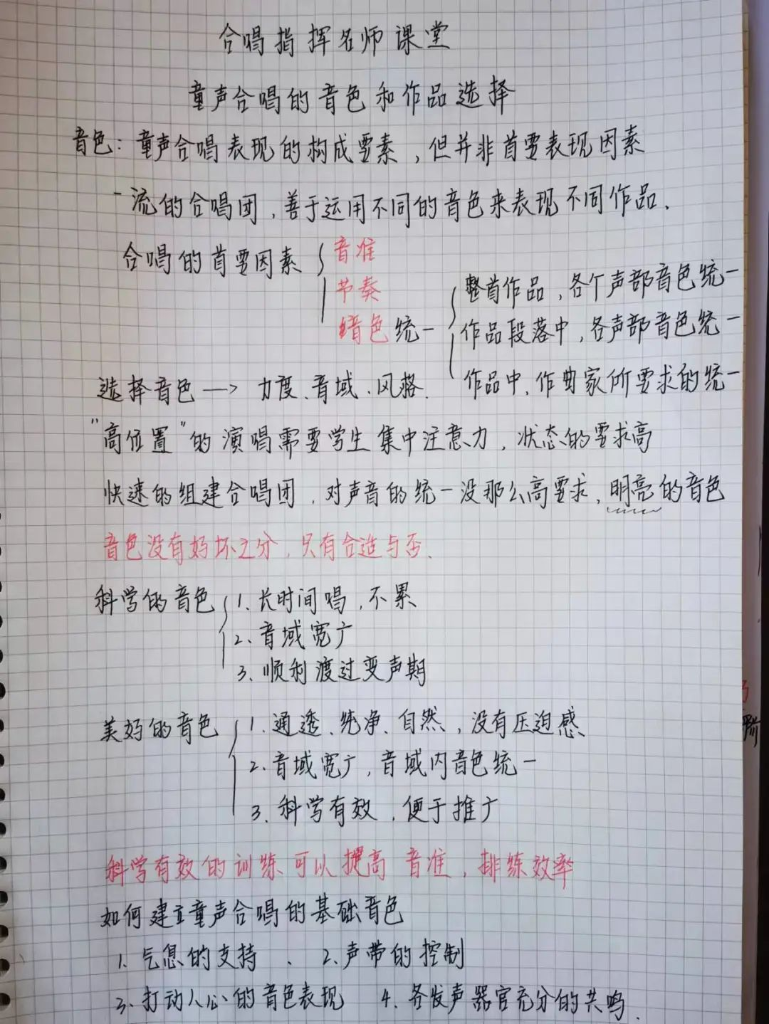 合唱指挥名师课堂
童声合唱的音色和作品选择
音色：童声合唱表现的构成要素，但并非首要表现因素
一流的合唱团，善于运用不同的音色来表现不同作品．
合唱的首要因素 音准
节奏
音色统一
整首作品，各个声部音色统一
作品段落中，各声部音色统一
作品中，作曲家所要求的统一
选择音色 → 力度、音域、风格．
"高位置"的演唱需要学生集中注意力，状态的要求高
快速的组建合唱团，对声音的统一没那么高要求，明亮的音色
音色没有好坏之分，只有合适与否．
科学的音色 1. 长时间唱，不累
2. 音域宽广
3. 顺利渡过变声期
美好的音色 1. 通透、纯净、自然，没有压迫感
2. 音域宽广，音域内音色统一
3. 科学有效，便于推广
科学有效的训练可以提高音准，排练效率
如何建立童声合唱的基础音色
1. 气息的支持 、 2. 声带的控制
3. 打动人心的音色表现 4. 各发声器官充分的共鸣．